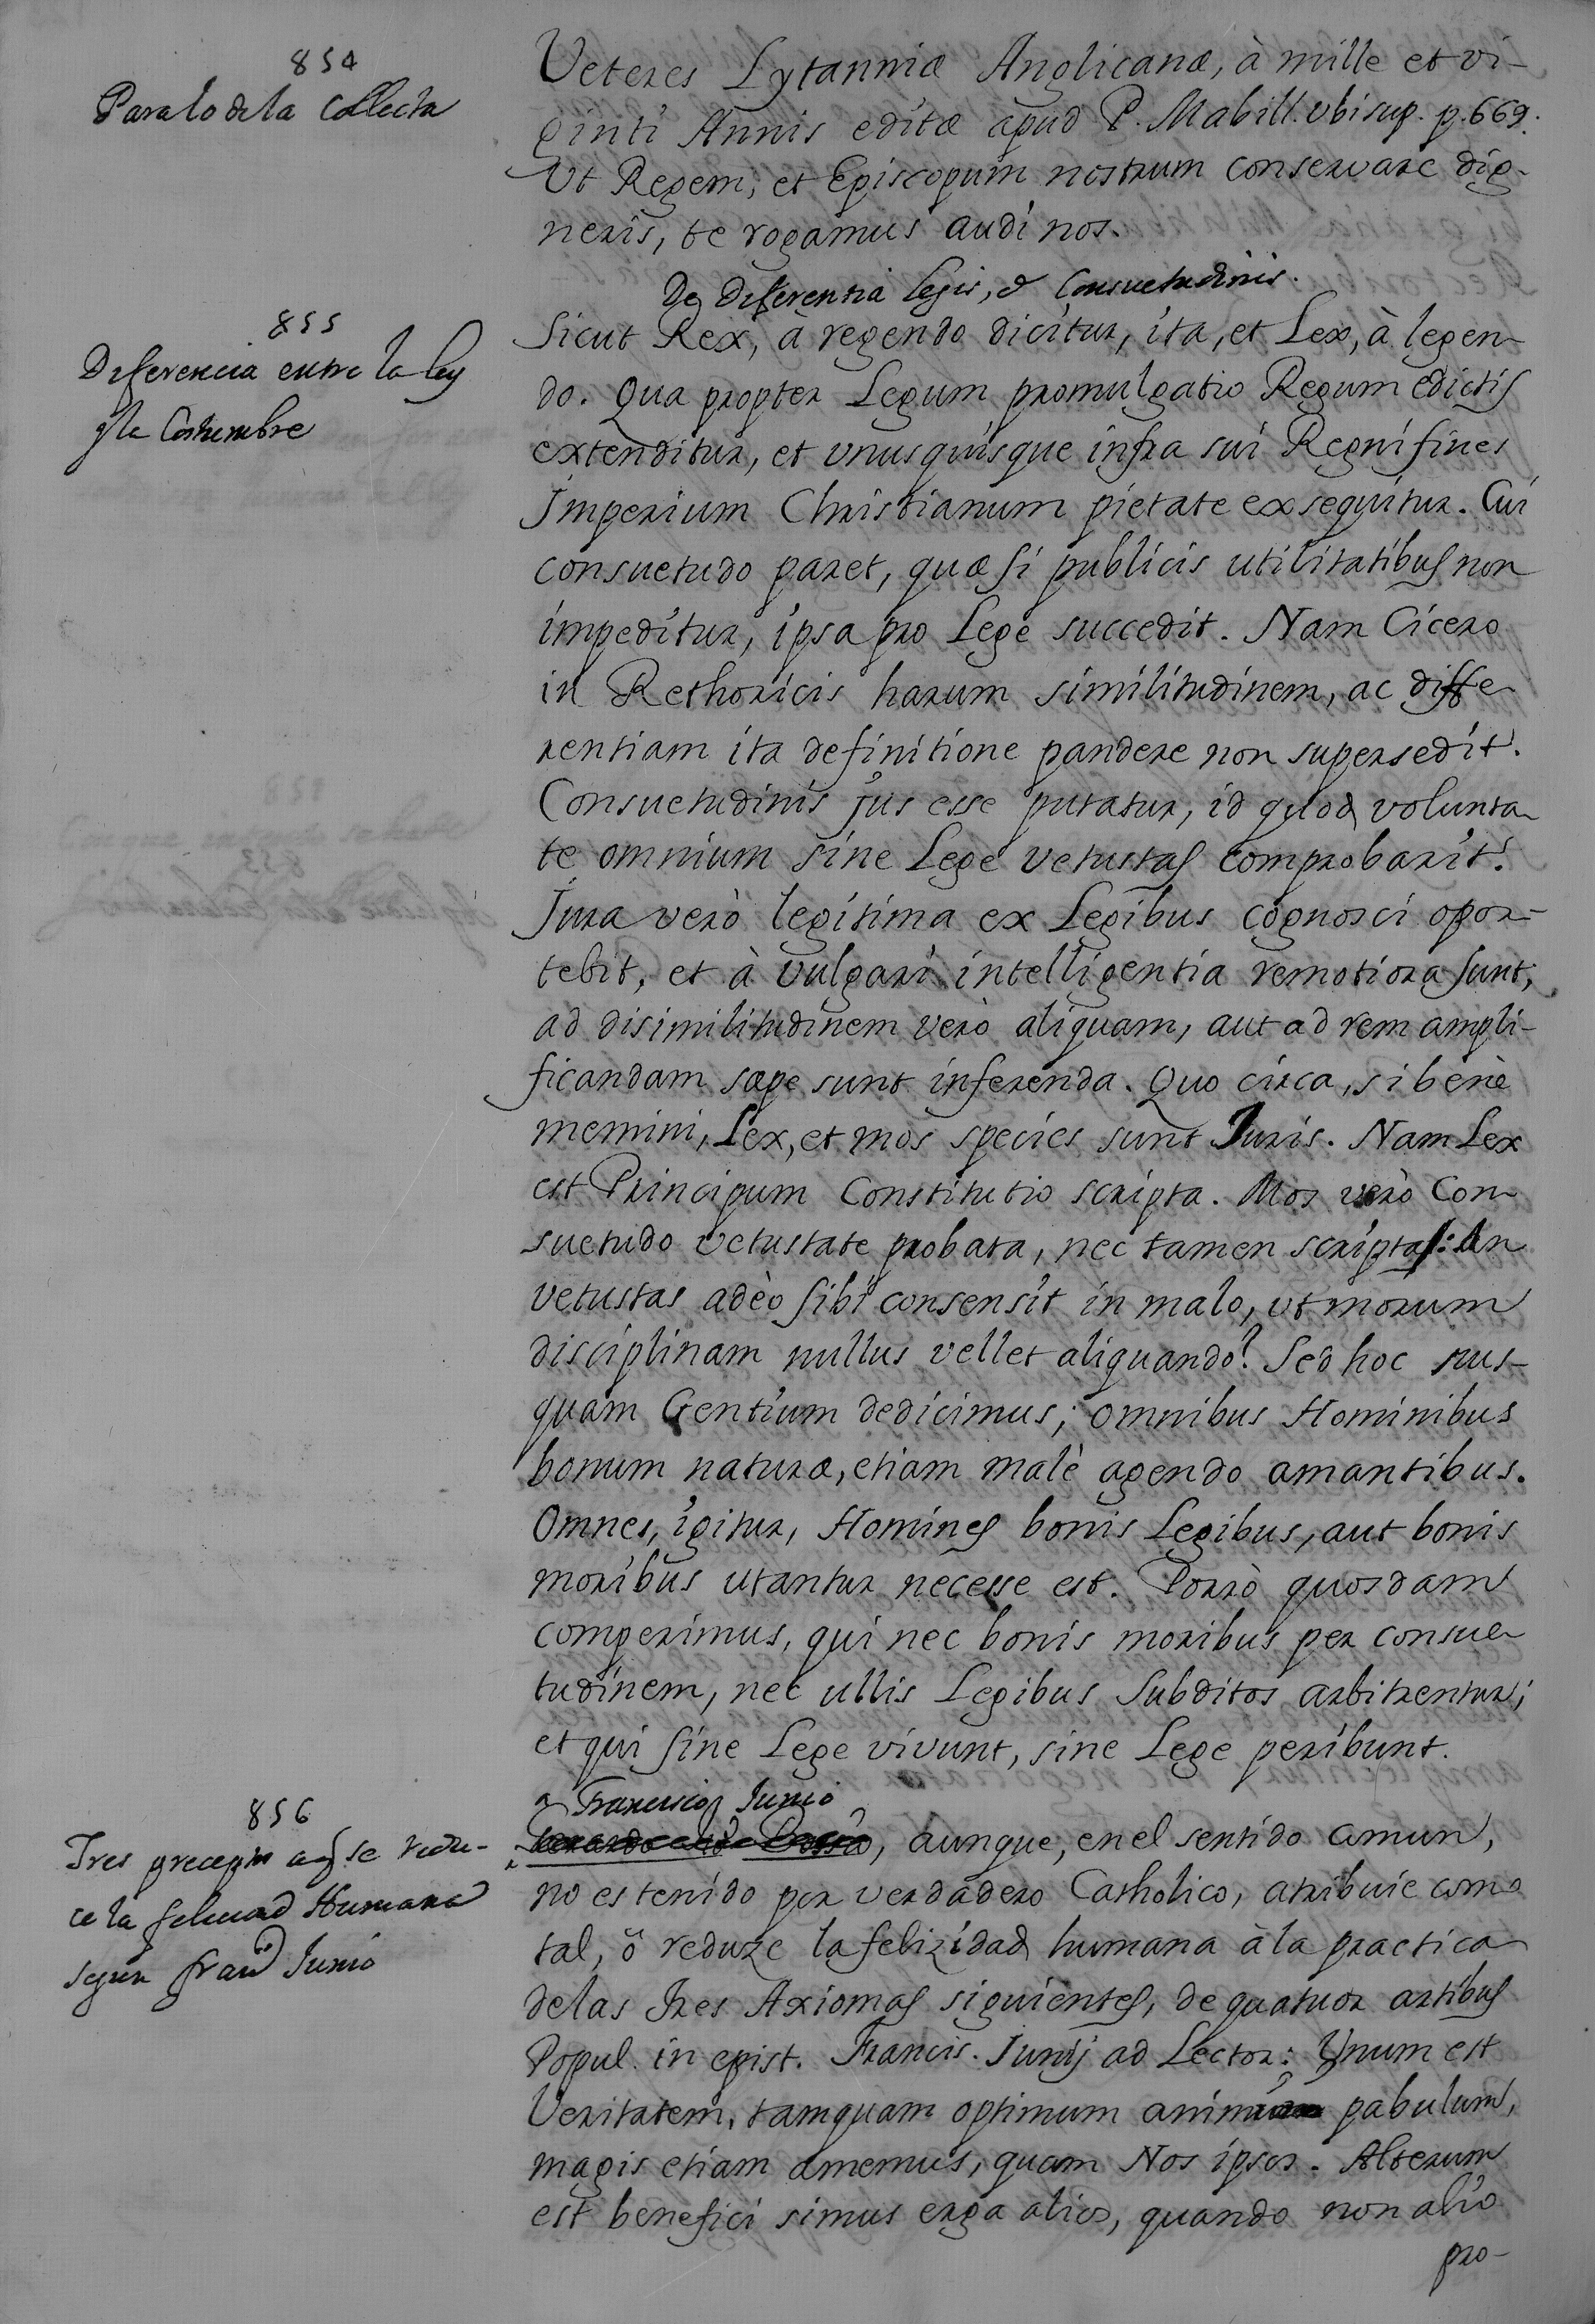 854
Para lo de la Collecta
Veteres Lytanniæ Anglicanæ, à mille et vi-
ginti Annis editæ apud P. Mabill. vbi sup. p. 669.
Vt Regem, et Episcopum nostrum conservare dig-
neris, te rogamus audi nos.
De diferentia Legis, & Consuetudinis.
855
Diferencia entre la ley
y la Costumbre
Sicut Rex, à regendo dicitur, ita, et Lex, à legen-
do. Qua propter Legum promulgatio Regum edictis
extenditur, et vnusquisque infra sui Regni fines
Imperium Christianum pietate exsequitur. Cui
consuetudo paret, quæ si publicis utilitatibus non
impeditur, ipsa pro Lege succedit. Nam Cicero
in Rethoricis harum similitudinem, ac diffe-
rentiam ita definitione pandere non supersedit.
Consuetudinis jus esse putatur, id quod volunta-
te omnium sine Lege vetustas comprobarit.
Jura verò legitima ex Legibus cognosci opor-
tebit, et à vulgari intelligentia remotiora sunt,
ad disimilitudinem verò aliquam, aut ad rem ampli-
ficandam sæpe sunt inferenda. Quo circa, si benè
memini, Lex, et mos species sunt Juris. Nam Lex
est Principum Constitutio scripta. Mos verò Con-
suetudo vetustate probata, nec tamen scripta: An
vetustas adèo sibi consensit in malo, vt morum
disciplinam nullus vellet aliquando? Sed hoc nus-
quam Gentium dedicimus; omnibus Hominibus
bonum naturæ, etiam malè agendo amantibus.
Omnes, igitur, Homines bonis Legibus, aut bonis
moribus utantur necesse est. Porrò quosdam
comperimus, qui nec bonis moribus per consue-
tudinem, nec ullis Legibus Subditos arbitrentur;
et qui sine Lege vivunt, sine Lege peribunt.
856
Tres preceptos a q se redu-
ce la felicidad Humana
segun Franco Junio
a Francisco Junio
, aunque, en el sentido comun,
no es tenido por verdadero Catholico, atribuie como
tal, ò reduze la felizidad humana à la practica
de las Tres Axiomas siguientes, de quatuor artibus
Popul. in epist. Francis. Junij ad Lector: Vnum est
Veritatem, tamquam optimum animi pabulum,
magis etiam amemus, quam Nos ipsos. Alterum
est benefici simus erga alios, quando non alio
pro-